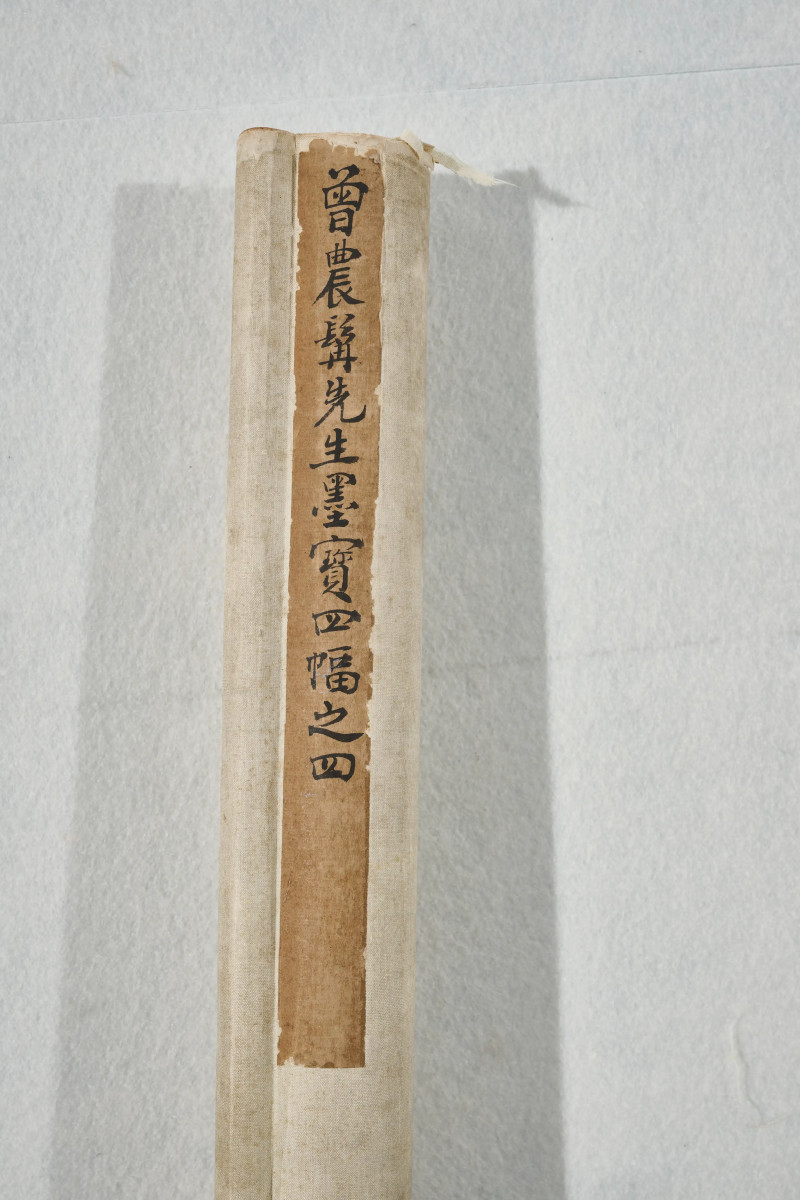 曾農髯先生墨寶四幅之四